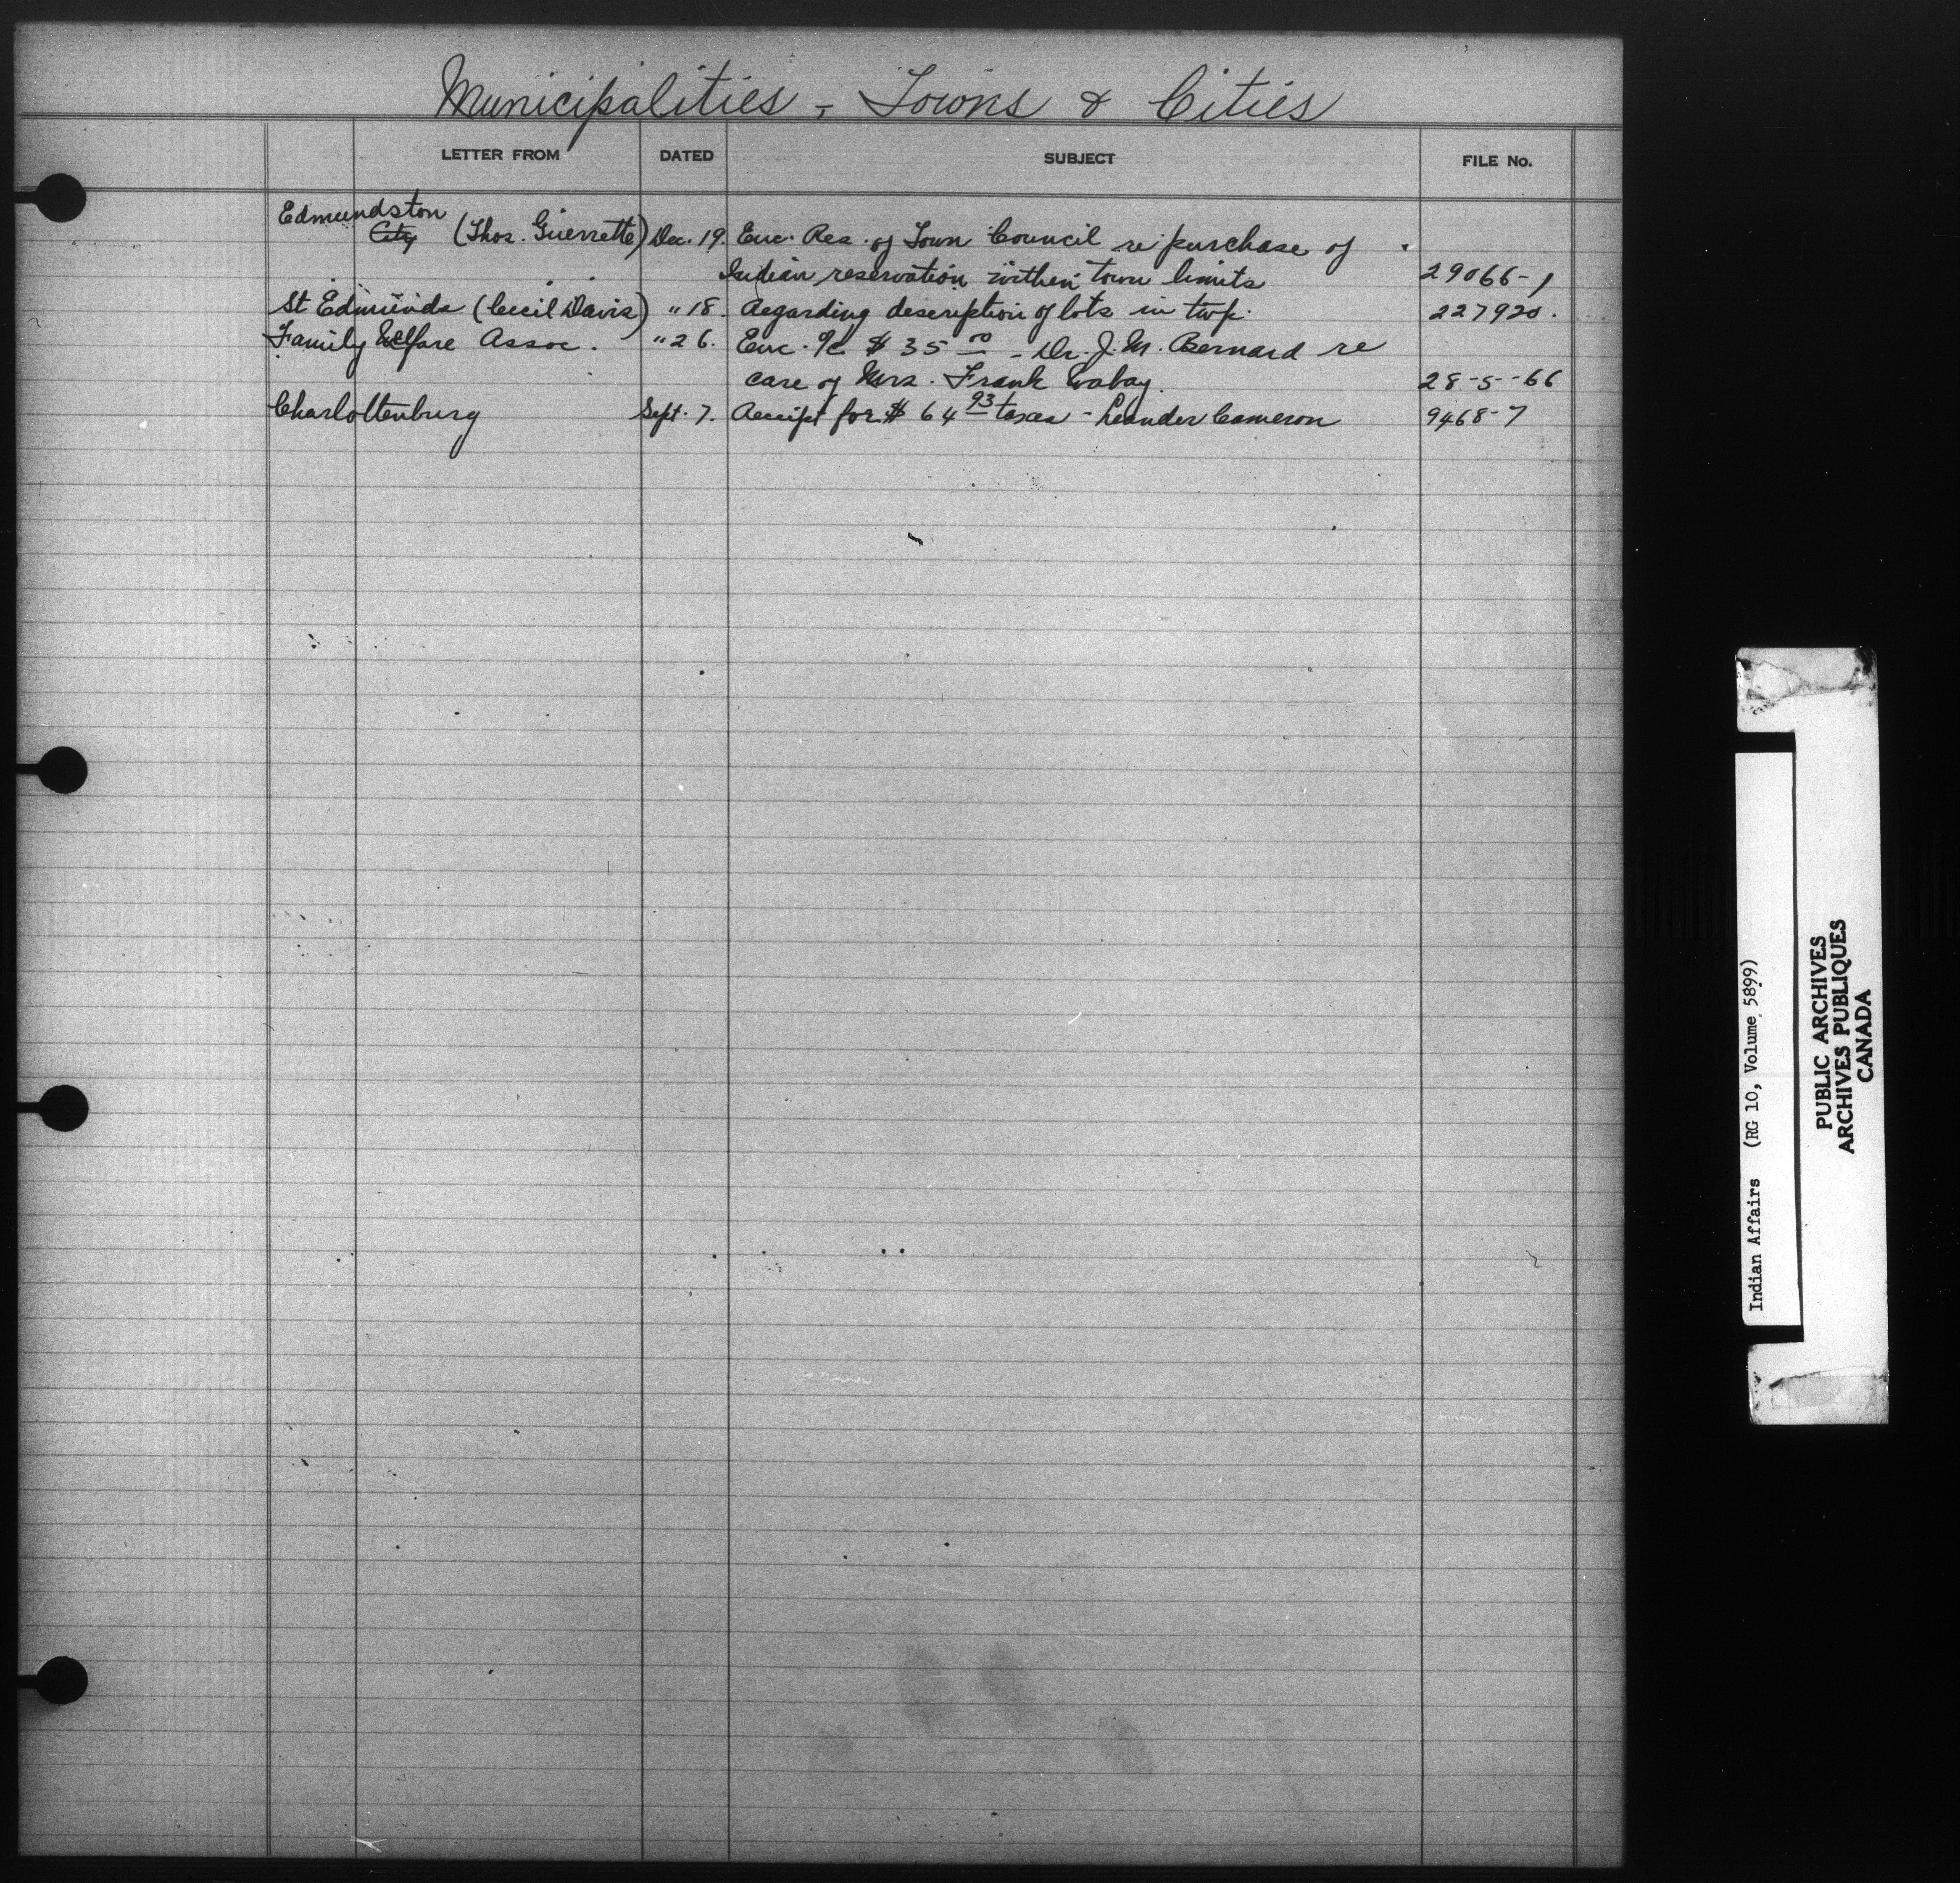 Municipalities - Towns & Cities
LETTER FROM DATED SUBJECT FILE No.
Edmundston
City (Thos. Guerrette) Dec. 19. Enc. Res. of Town Council re purchase of
Indian reservation within town limits 29066-1
St Edmunds (Cecil Davis) " 18. Regarding description of lots in twp. 227920.
Family Welfare Assoc. " 26. Enc. a/c $ 35 00 - Dr. J. M. Bernard re
care of Mrs. Frank Wabay. 28-5-66
Charlottenburg Sept. 7. Receipt for $ 64 93 taxes - Leander Cameron 9468-7
Indian Affairs (RG 10, Volume 5899)
PUBLIC ARCHIVES
ARCHIVES PUBLIQUES
CANADA